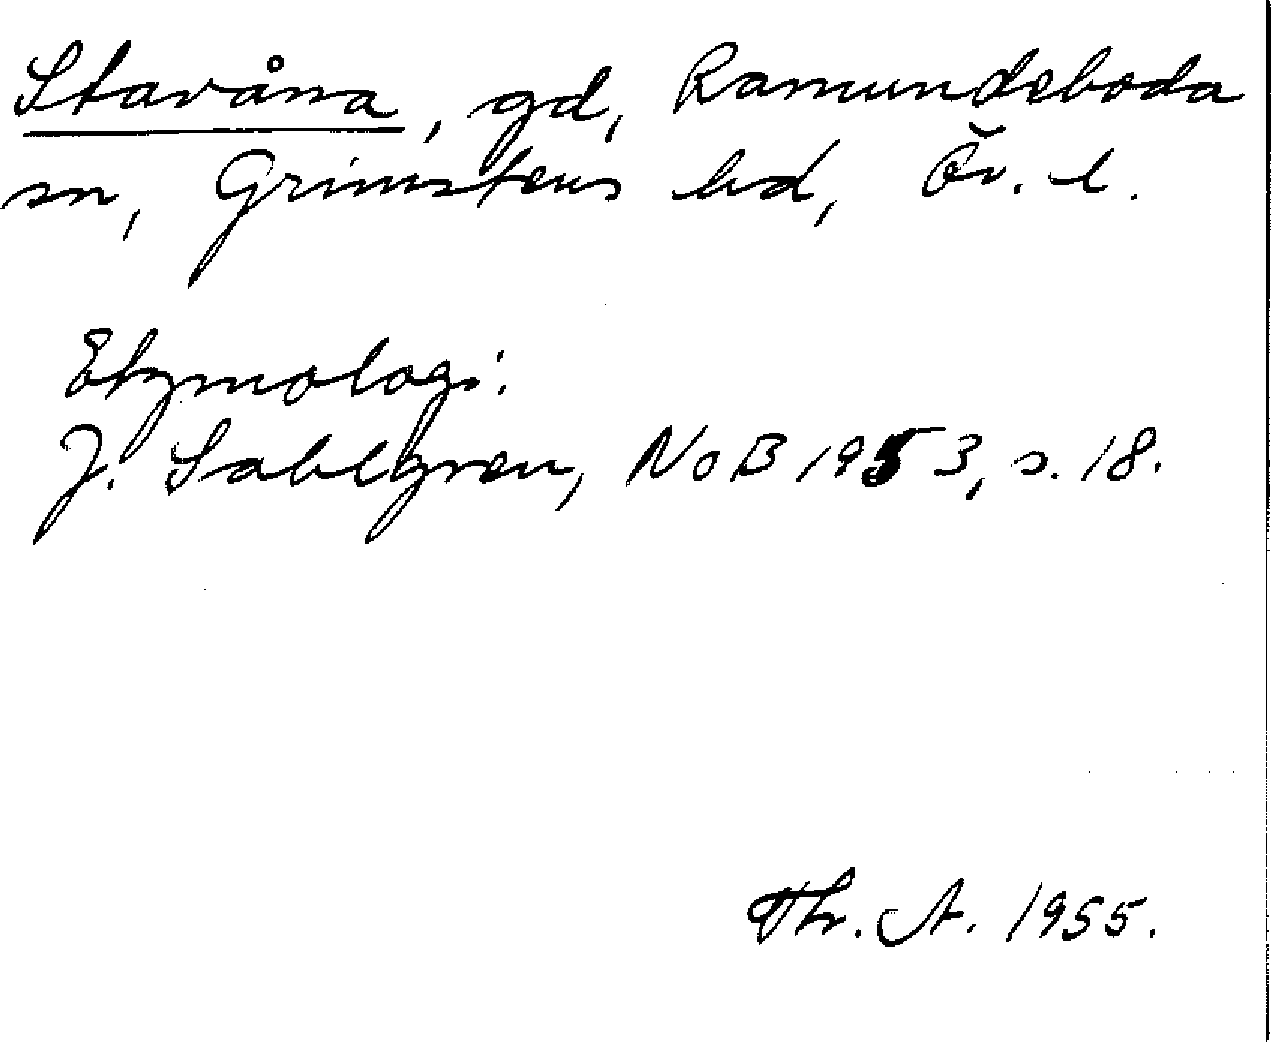 Stavåna, gd, Ramundeboda
sn, Grimstens hd, Ör. l.
Etymologi:
J. Sahlgren, NoB 1953, s. 18.
Th. A. 1955.